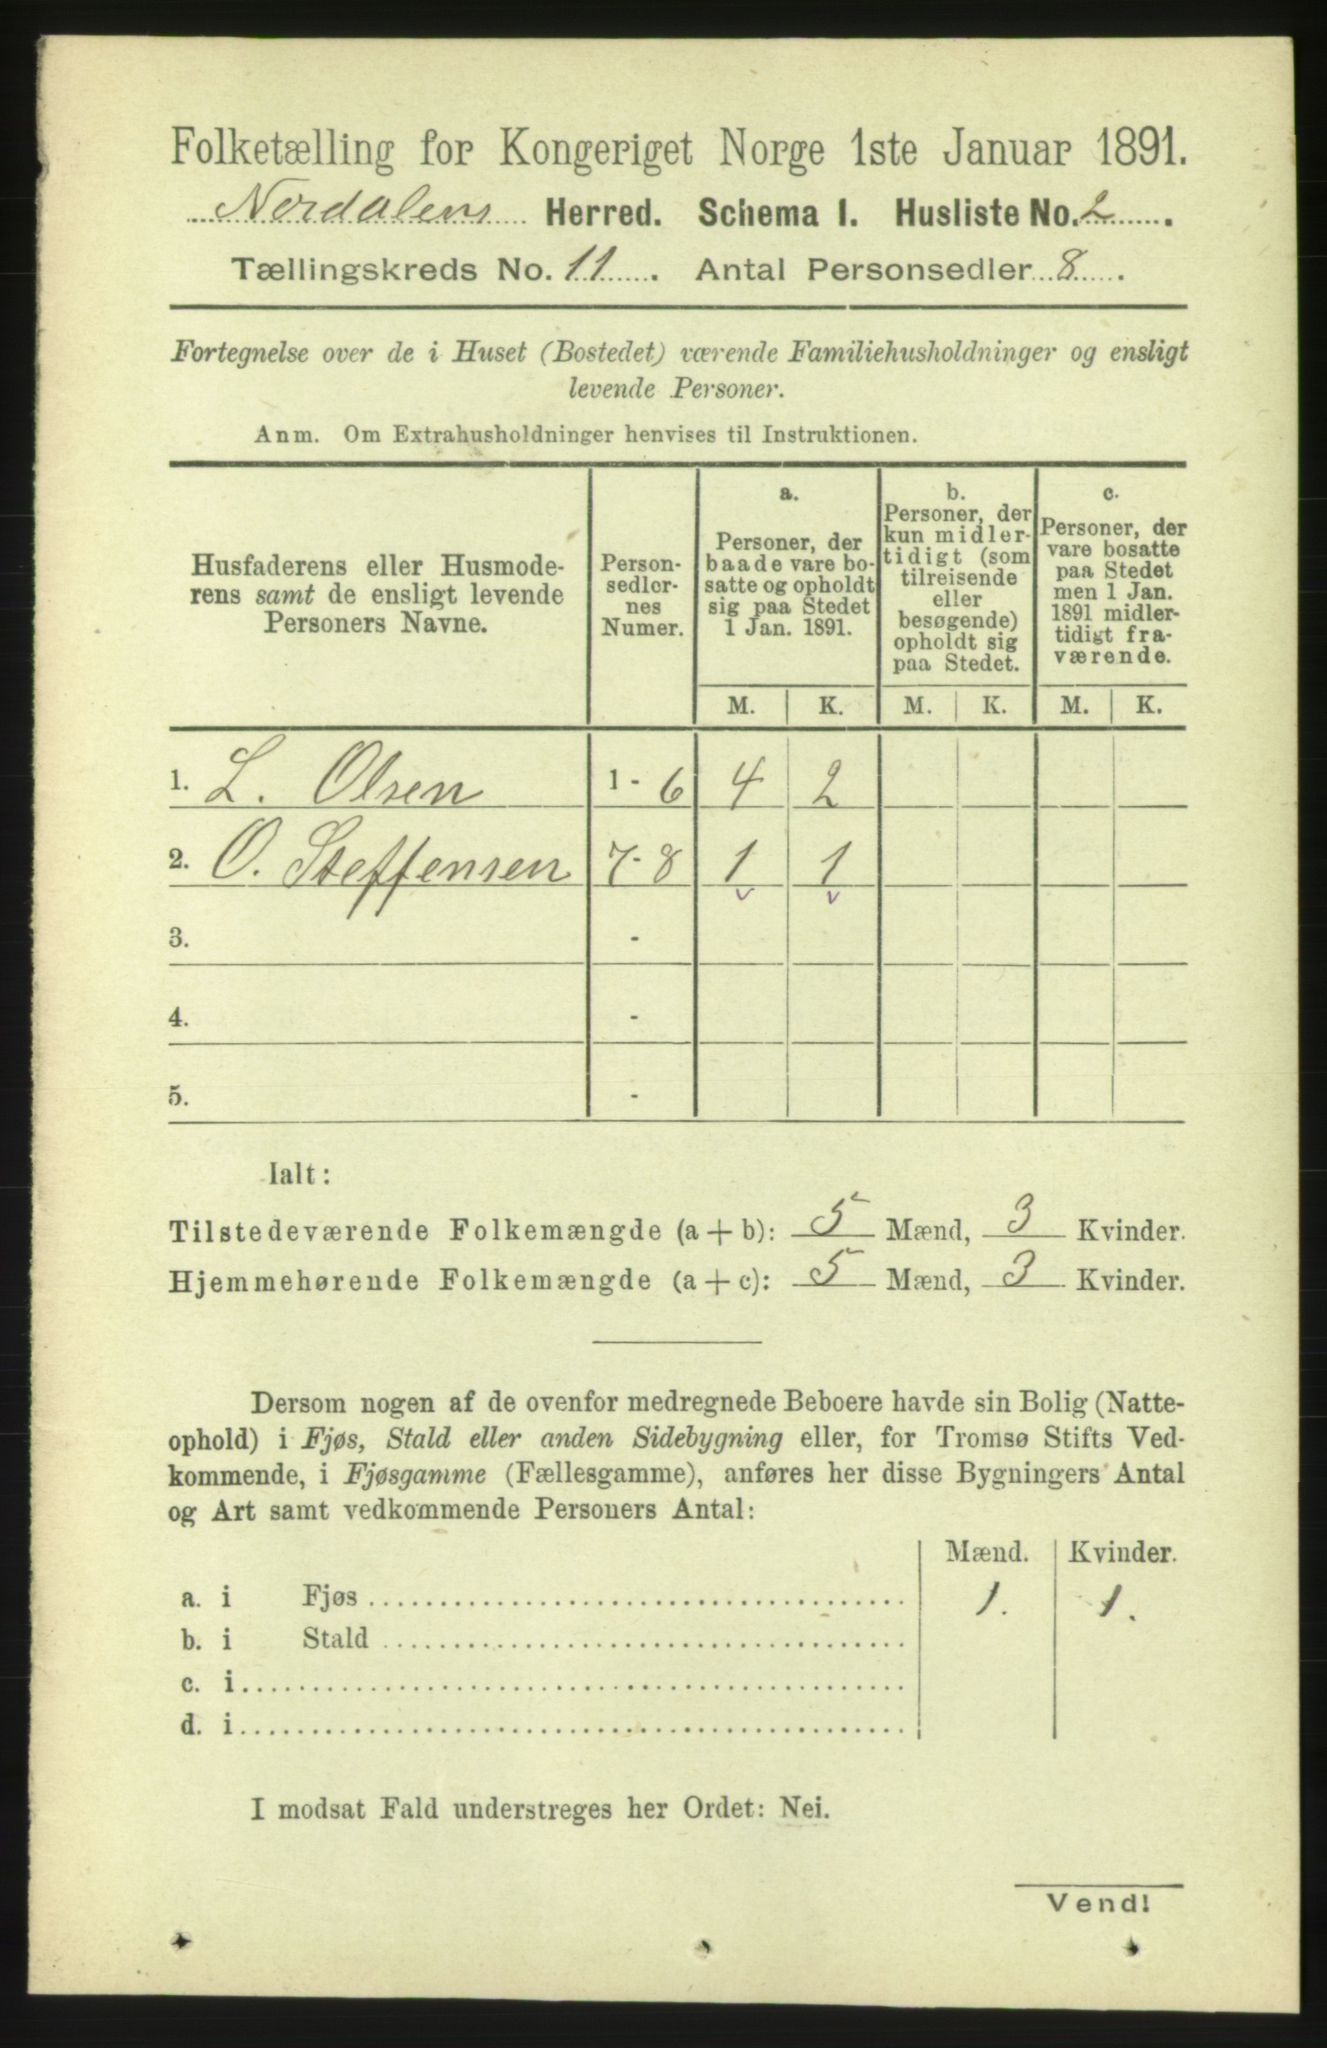 Folketælling for Kongeriget Norge 1ste Januar 1891.
Nordalens Herred. Schema I. Husliste No. 2.
Tællingskreds No. 11. Antal Personsedler 8.
Fortegnelse over de i Huset (Bostedet) værende Familiehusholdninger og ensligt
levende Personer.
Anm. Om Extrahusholdninger henvises til Instruktionen.
Husfaderens eller Husmode-
rens samt de ensligt levende
Personers Navne.
Person-
sedler-
nes
Numer.
a.
Personer, der
baade vare bo-
satte og opholdt
sig paa Stedet
1 Jan. 1891.
b.
Personer, der
kun midler-
tidigt (som
tilreisende
eller
besøgende)
opholdt sig
paa Stedet.
c.
Personer, der
vare bosatte
paa Stedet
men 1 Jan.
1891 midler-
tidigt fra-
værende.
M. K. M. K. M. K.
1. L. Olsen 1 - 6 4 2
2. O. Steffensen 7-8 1 1
3. -
4. -
5. -
Ialt:
Tilstedeværende Folkemængde (a + b): 5 Mænd, 3 Kvinder.
Hjemmehørende Folkemængde (a + c): 5 Mænd, 3 Kvinder.
Dersom nogen af de ovenfor medregnede Beboere havde sin Bolig (Natte-
ophold) i Fjøs, Stald eller anden Sidebygning eller, for Tromsø Stifts Ved-
kommende, i Fjøsgamme (Fællesgamme), anføres her disse Bygningers Antal
og Art samt vedkommende Personers Antal:
Mænd. Kvinder.
a. i Fjøs 1. 1.
b. i Stald
c. i
d. i
I modsat Fald understreges her Ordet: Nei.
Vend!